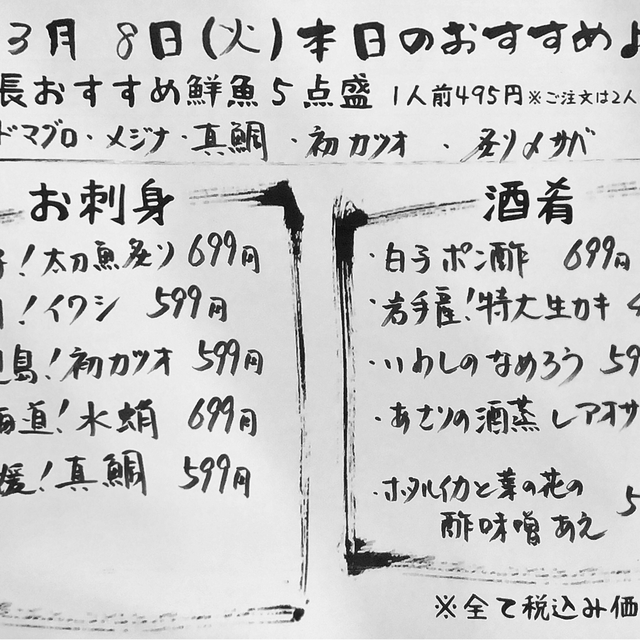 3月 8日(火)本日のおすすめ
長おすすめ鮮魚5点盛 1人前495円※ご注文は2人
ドマグロ・メジナ・真鯛・初カツオ・炙り〆サバ
お刺身
!太刀魚炙り 699円
!イワシ 599円
島!初カツオ 599円
海道!水蛸 699円
媛!真鯛 599円
酒肴
・白子ポン酢 699円
・岩手産!特大生カキ 4
・いわしのなめろう 59
・あさりの酒蒸し アオサ
・ホタルイカと菜の花の
酢味噌あえ 5
※全て税込み価